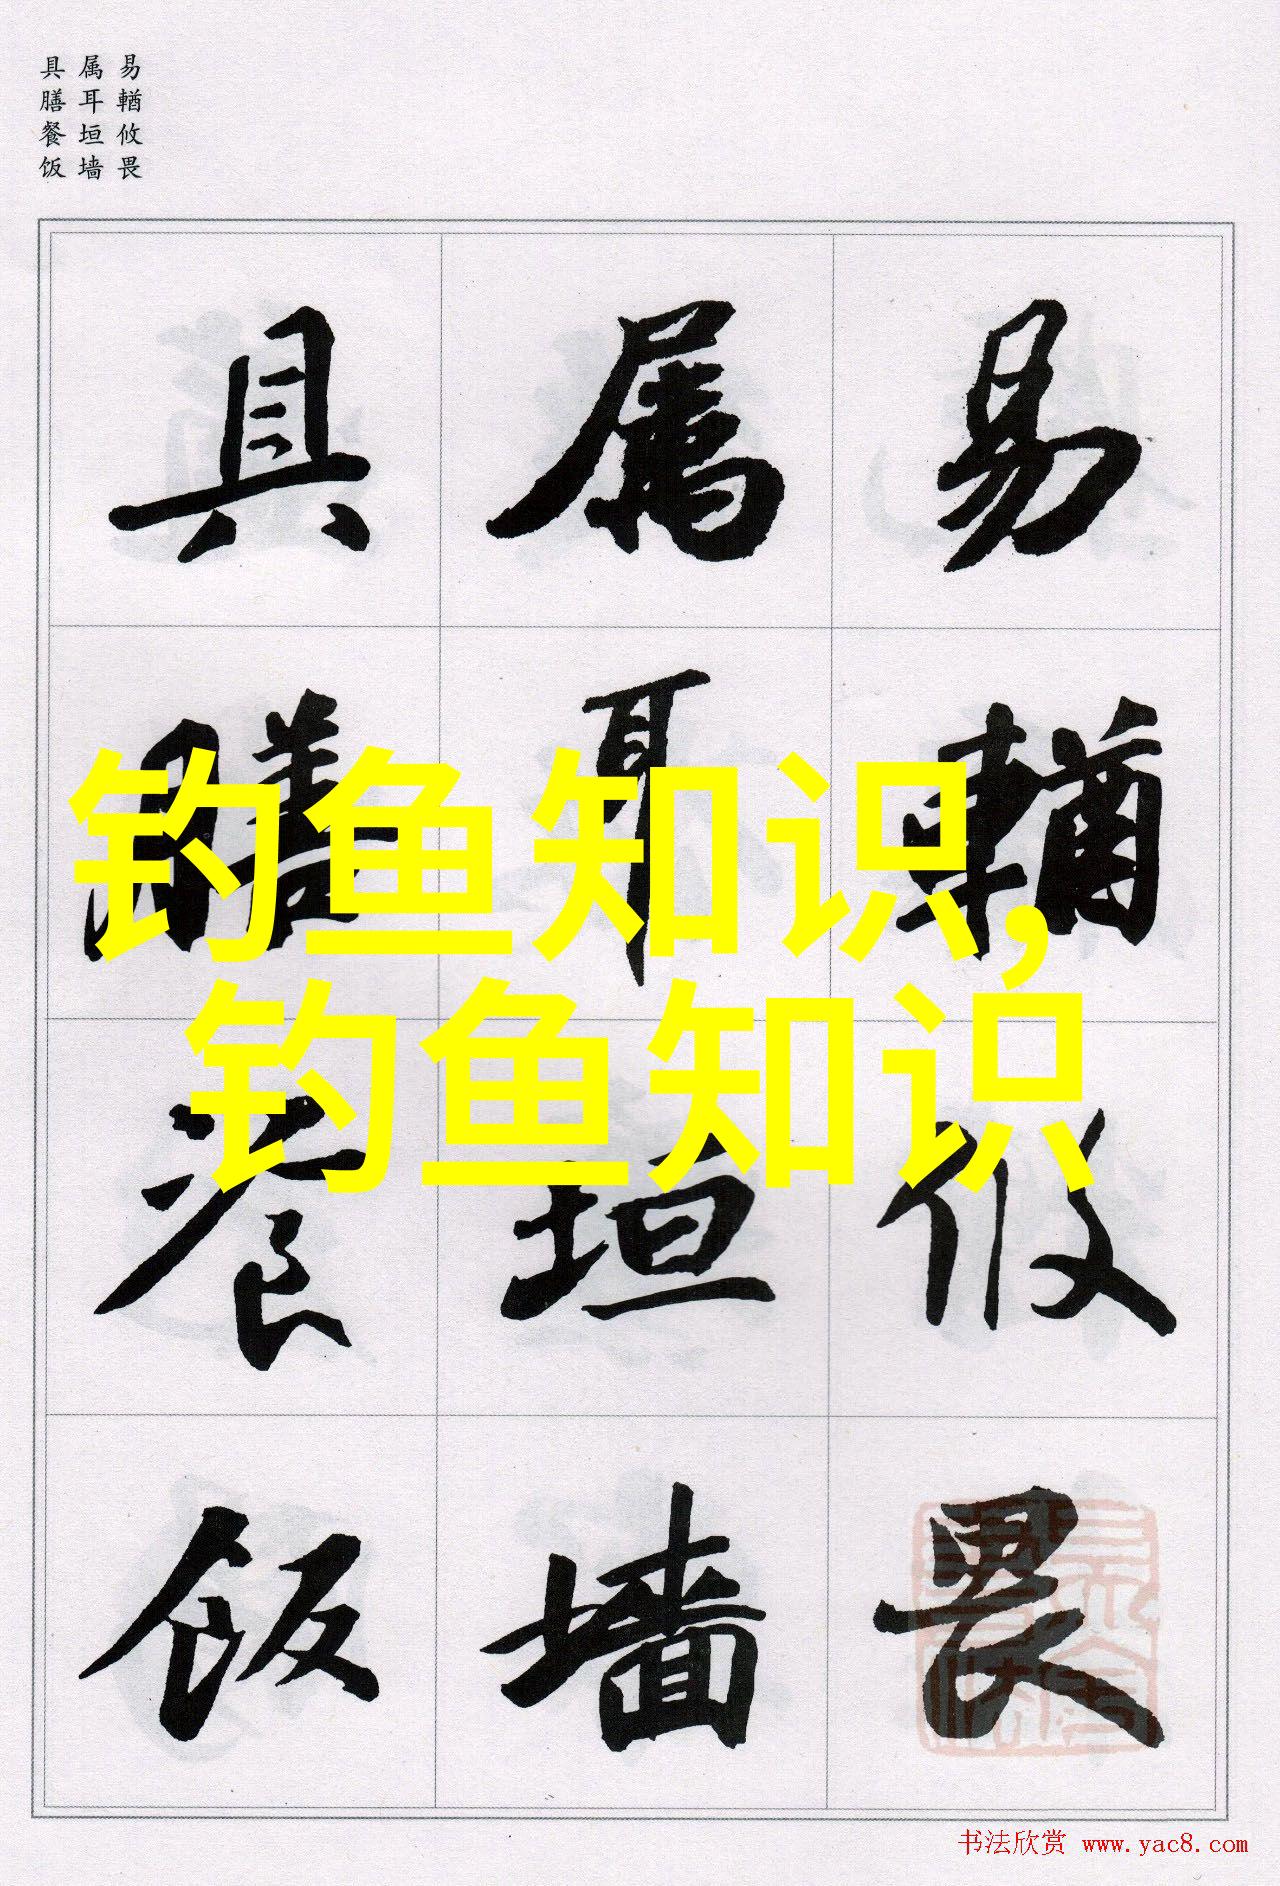 易輶攸畏
属耳垣墙
具膳餐饭
易輶攸畏
属耳垣墙
具膳餐饭
钓鱼知识,
钓鱼知识
书法欣赏 www.yac8.com